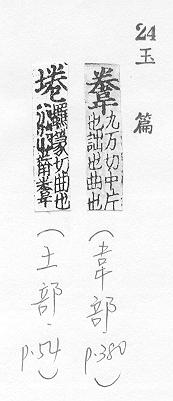 24 玉篇
韏 九万切中斤
也詘也曲也
（韋部．p.380）
埢 切曲也
（土部．p.54）